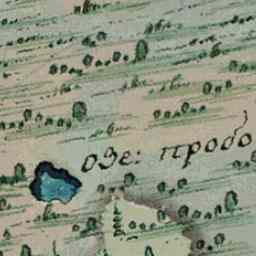 озе: прободо